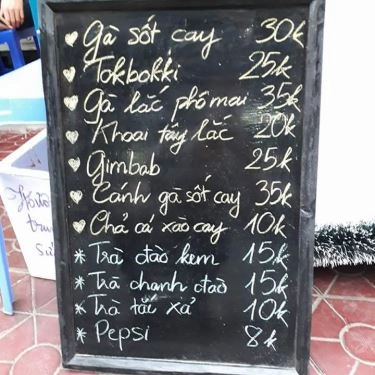 Gà sốt cay 30k
Tokbokki 25k
Gà lắc phô mai 35k
Khoai tây lắc 20k
Gimbab 25k
Cánh gà sốt cay 35k
Chả cá xào cay 10k
Trà đào kem 15k
Trà chanh đào 15k
Trà tắc xả 10k
Pepsi 8k